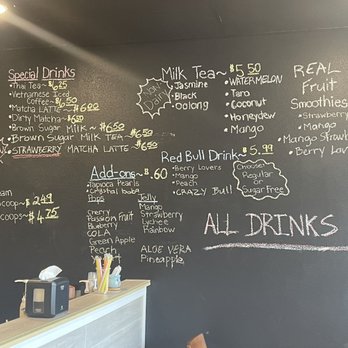 Special Drinks
• Thai Tea ~ $6.25
• Vietnamese Iced
Coffee ~ $6.50
• Matcha LATTE ~ $6.00
• Dirty Matcha ~ $6.50
• Brown Sugar Milk ~ $6.50
• Brown Sugar MILK TEA ~ $6.50
STRAWBERRY MATCHA LATTE $6.50
Non
Dairy
Milk Tea ~ $5.50
• Jasmine
• Black
• Oolong
• WATERMELON
• Taro
• Coconut
• Honeydew
• Mango
REAL
Fruit
Smoothies
• Strawberry
• Mango
• Mango Straw
• Berry Lov
Add-ons ~ $.60
Tapioca Pearls
Crystal boba
Pops
Cherry
Passion Fruit
Blueberry
COLA
Green Apple
Peach
Jelly
Mango
Strawberry
Lychee
Rainbow
ALOE VERA
Pineapple
Red Bull Drink ~ $5.99
• Berry Lovers
• Mango
• Peach
• CRAZY Bull!
Choose:
Regular
or
Sugar free
scoop ~ $2.49
scoops ~ $4.75
ALL DRINKS